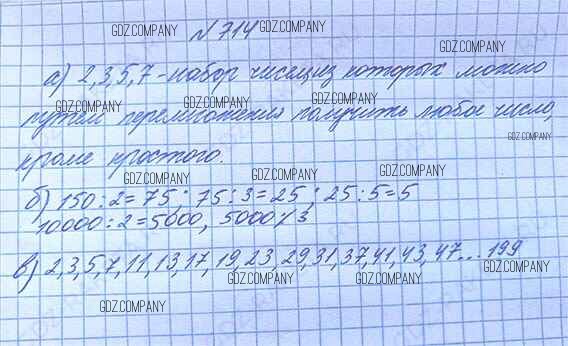 № 714
а) 2,3,5,7 - набор чисел, из которых можно
путём перемножения получить любое число,
кроме простого.
б) 150:2=75; 75:3=25; 25:5=5
10000:2=5000, 5000 ⁒ 3
в) 2,3,5,7,11,13,17,19,23,29,31,37,41,43,47...199
GDZ.COMPANY
GDZ.COMPANY
GDZ.COMPANY
GDZ.COMPANY
GDZ.COMPANY
GDZ.COMPANY
GDZ.COMPANY
GDZ.COMPANY
GDZ.COMPANY
GDZ.COMPANY
GDZ.COMPANY
GDZ.COMPANY
GDZ.COMPANY
GDZ.COMPANY